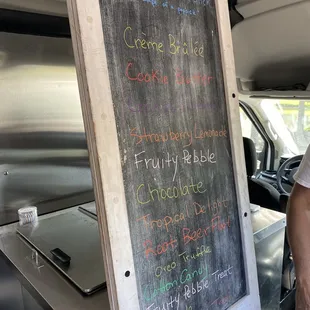 Crème Brûlée
Cookie Butter
Strawberry Lemonade
Fruity Pebble
Chocolate
Tropical Delight
Root Beer Float
Oreo Truffle
Cotton Candy
Fruity Pebble Treat